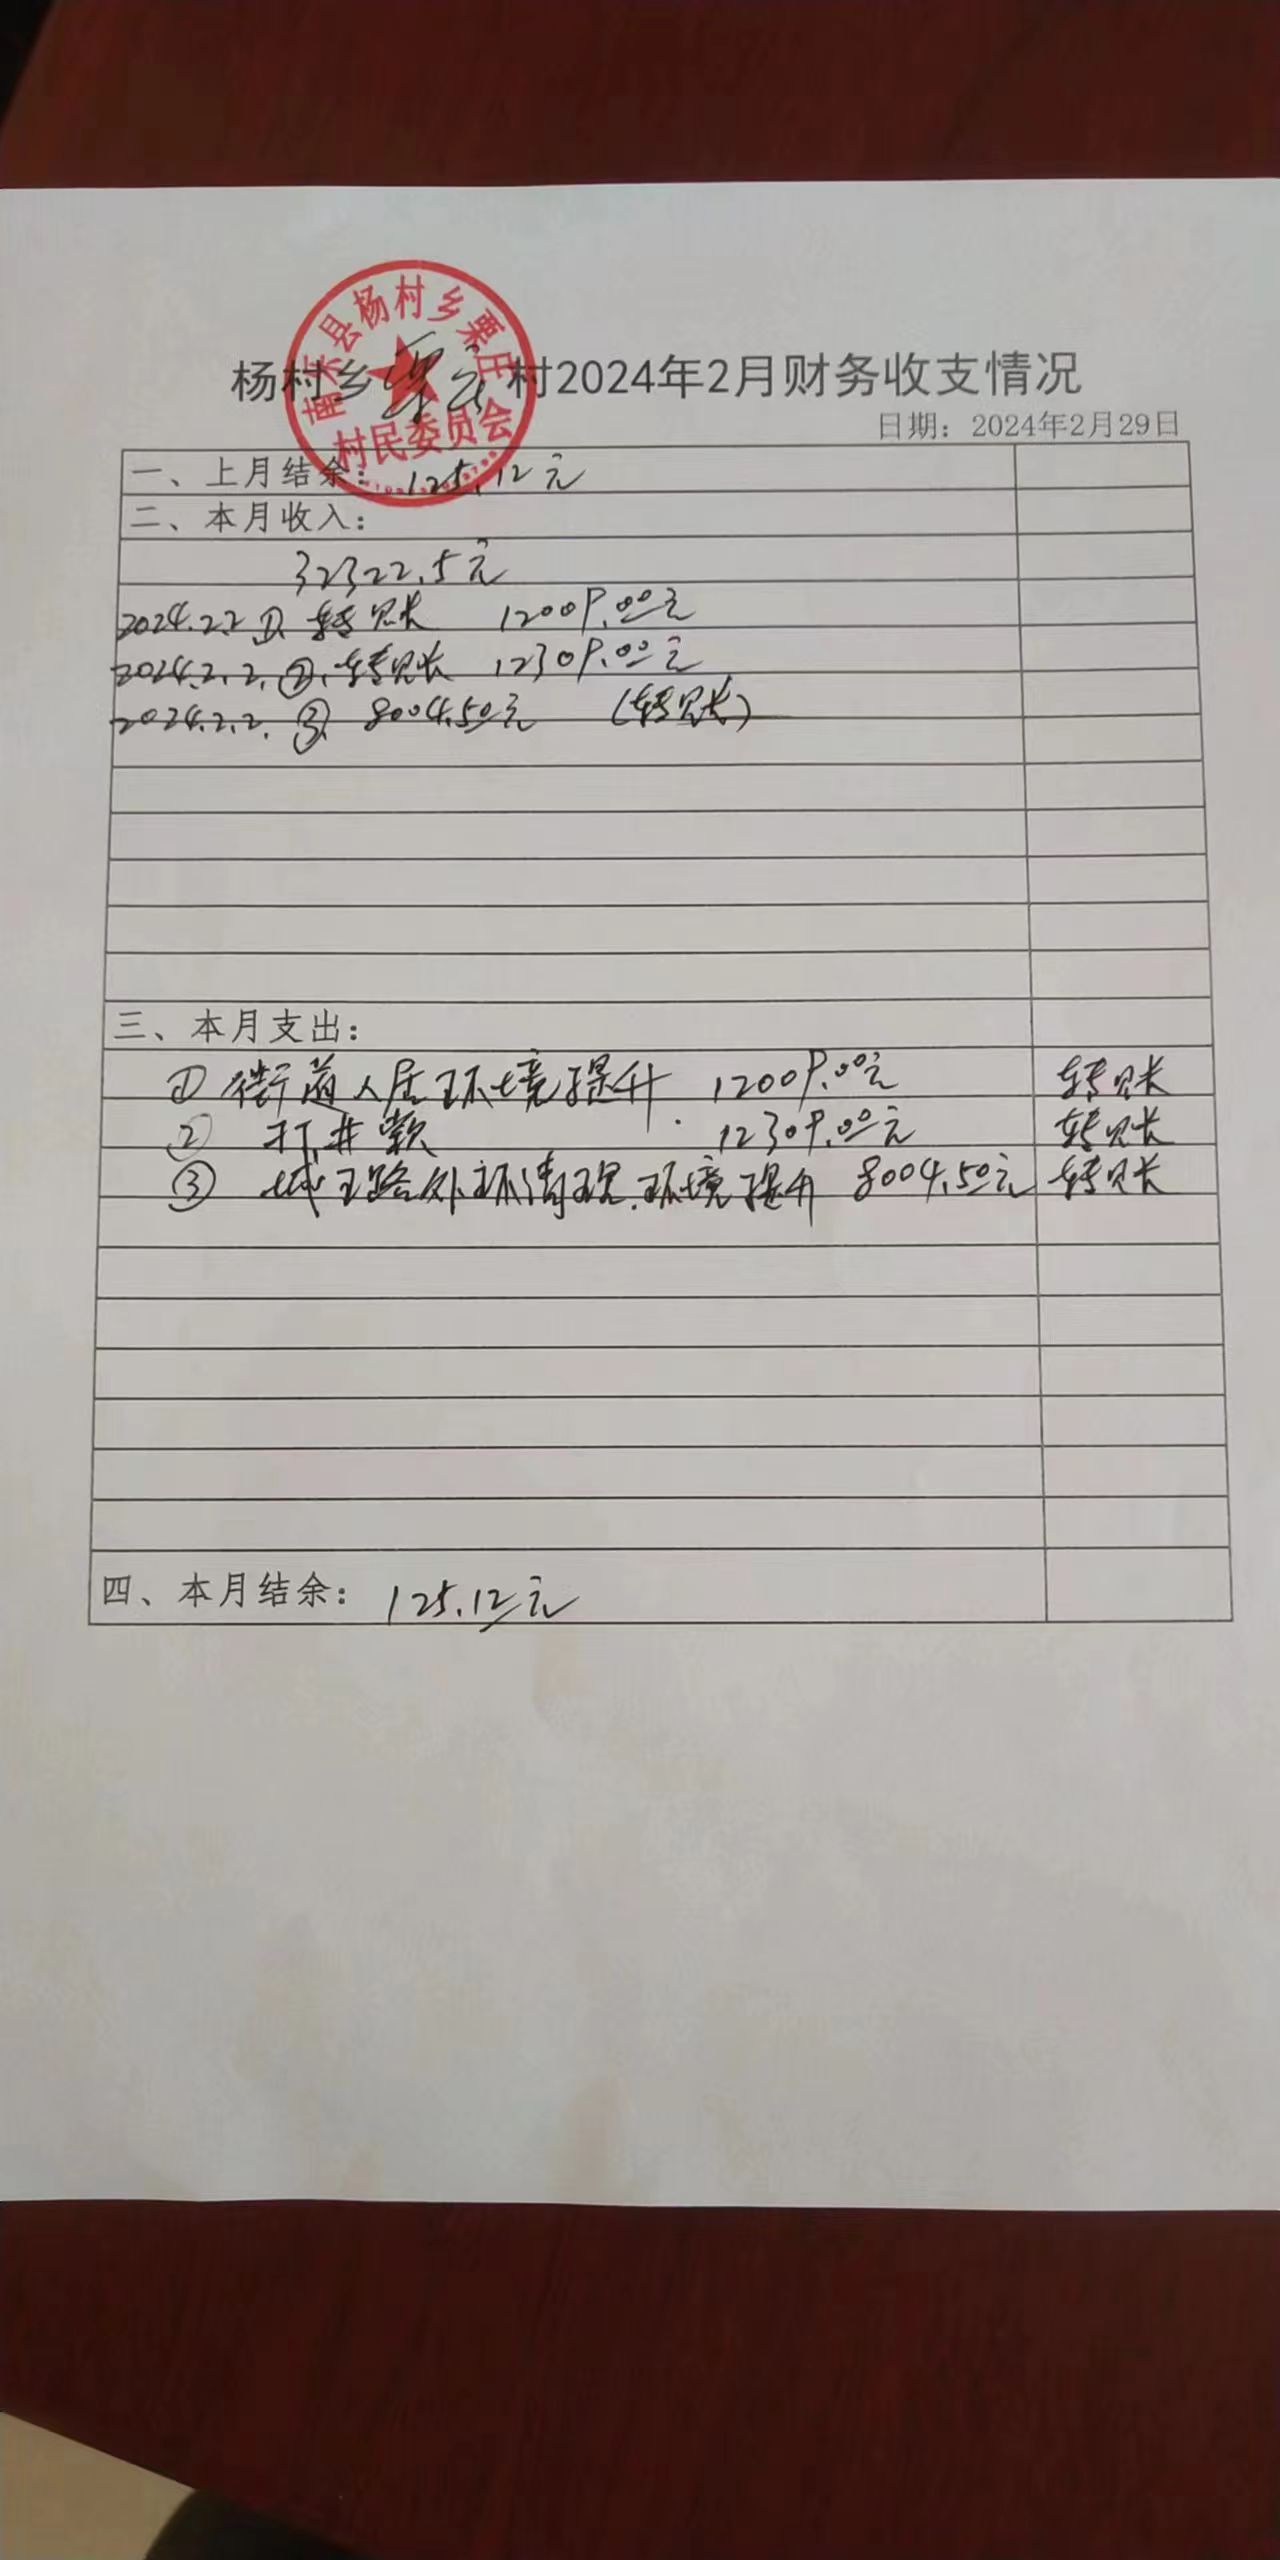 南乐县杨村乡栗庄
村民委员会
杨村乡栗庄村2024年2月财务收支情况
日期：2024年2月29日
一、上月结余：125.12元
二、本月收入：
32322.5元
2024.2.2 ①. 转账 12009.00元
2024.2.2. ②. 转账 12309.00元
2024.2.2. ③. 8004.50元 （转账）
三、本月支出：
① 街道人居环境提升 12009.00元 转账
② 打井款 12309.00元 转账
③ 城王路外环清理.环境提升 8004.50元 转账
四、本月结余：125.12元